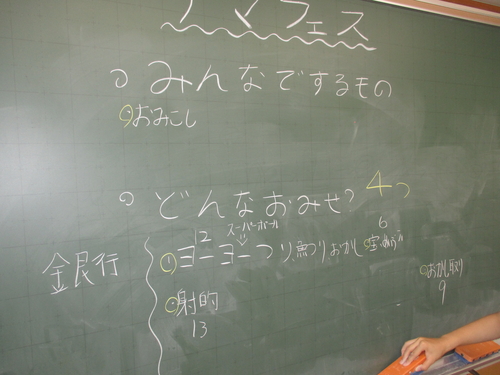 マフェス
みんなでするもの
おみこし
どんなおみせ? 4つ
12 スーパーボール 6
① ヨーヨーつり 魚つり おかし
金艮行
おかし取り
9
射的
13